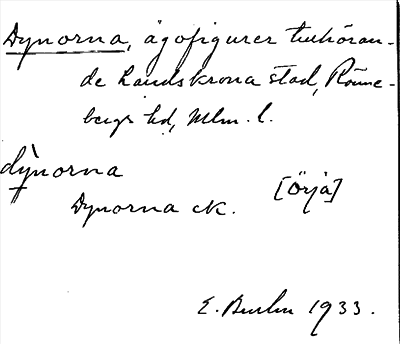 Dynorna, ägofigurer tillhöran-
de Landskrona stad, Rönne-
bergs hd, Mlm. l.
dỳnorna
Dynorna ek. [Örja]
E. 1933.